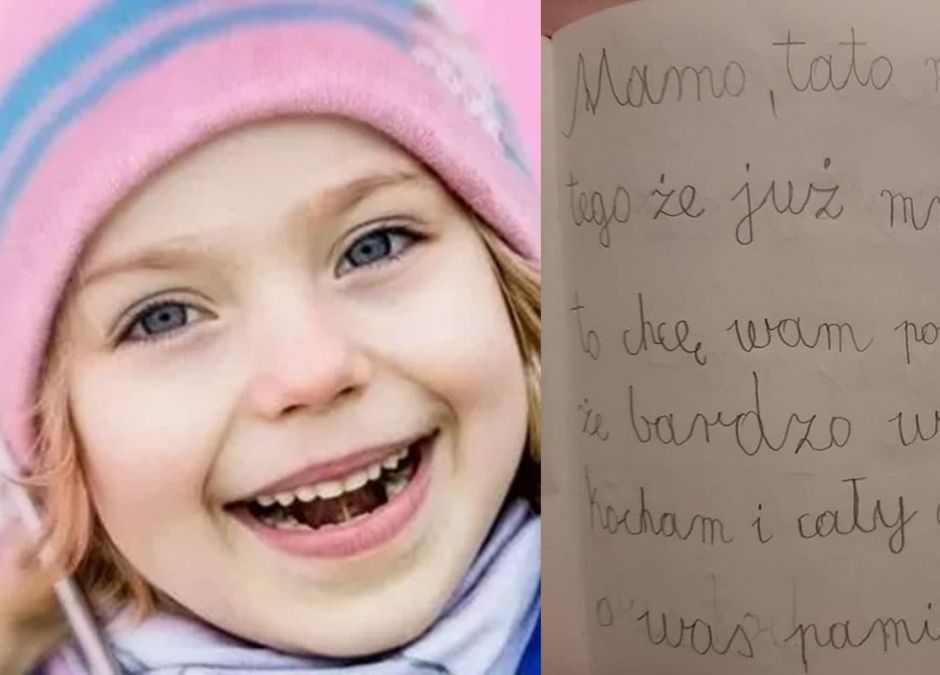 Mamo, tato
tego że już
to chcę wam
że bardzo
kocham i cały
o was